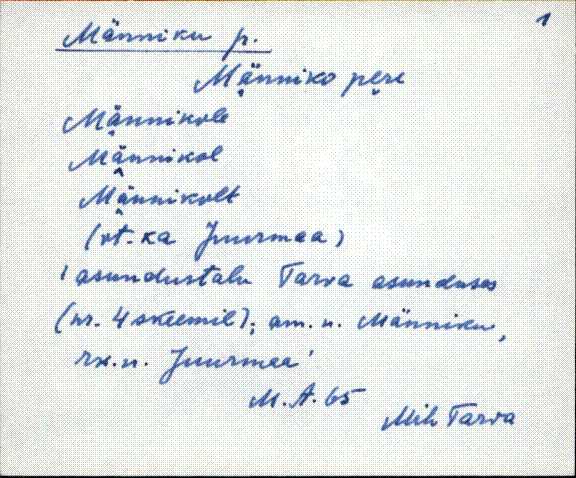 1
Männiku p.
Männiko pere
Männikole
Männikol
Männikolt
(vt. ka Juurmaa)
'asundustalu Tarva asunduses
(nr. 4 skeemil); am. n. Männiku,
rx. n. Juurmaa'
M. A. 65
Mih Tarva